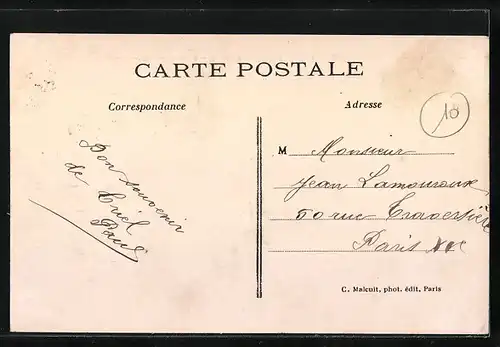 CARTE POSTALE
Correspondance
Adresse
10
Bon souvenir
de Criel
Paul
M Monsieur
Jean Lamouroux
50 rue Traversière
Paris
C. Malcuit, phot. édit, Paris